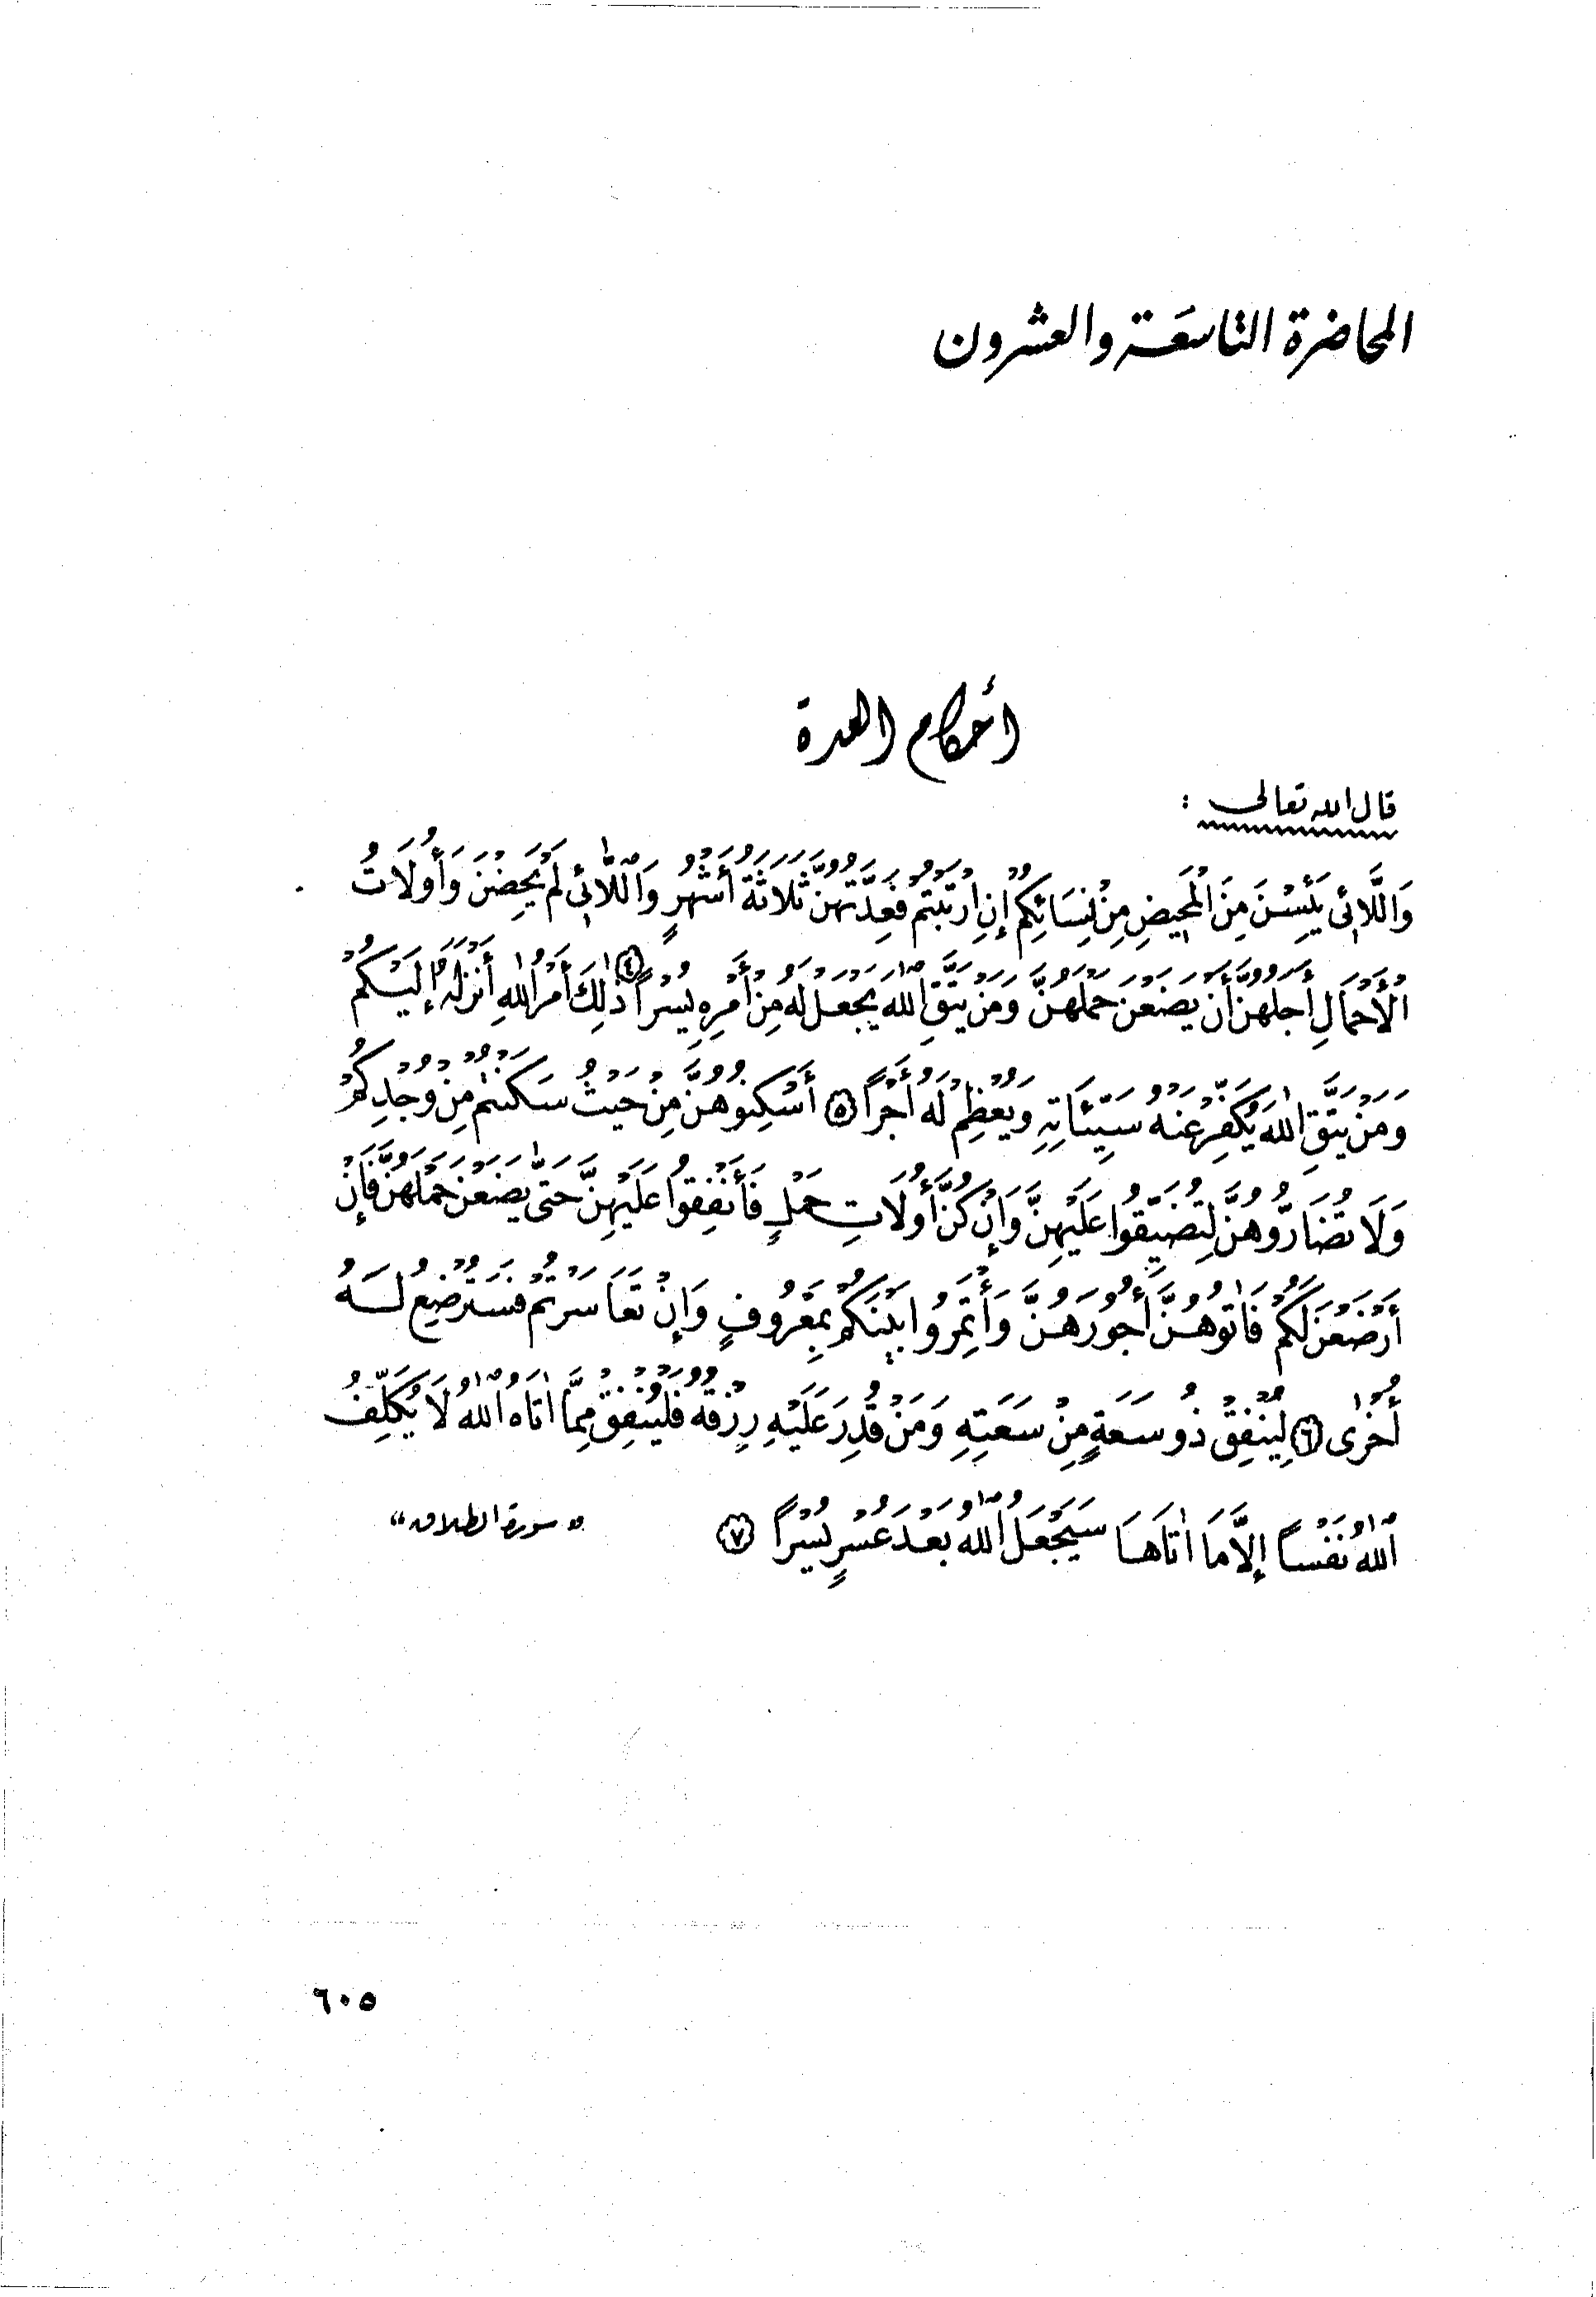 المحاضرة التاسعة والعشرون
أحكام العدة
قال الله تعالى :
وَاللَّائِي يَئِسْنَ مِنَ الْمَحِيضِ مِنْ نِسَائِكُمْ إِنِ ارْتَبْتُمْ فَعِدَّتُهُنَّ ثَلَاثَةُ أَشْهُرٍ وَاللَّائِي لَمْ يَحِضْنَ وَأُولَاتُ
الْأَحْمَالِ أَجَلُهُنَّ أَنْ يَضَعْنَ حَمْلَهُنَّ وَمَنْ يَتَّقِ اللّٰهَ يَجْعَلْ لَهُ مِنْ أَمْرِهِ يُسْرًا ﴿٤﴾ ذٰلِكَ أَمْرُ اللّٰهِ أَنْزَلَهُ إِلَيْكُمْ
وَمَنْ يَتَّقِ اللّٰهَ يُكَفِّرْ عَنْهُ سَيِّئَاتِهِ وَيُعْظِمْ لَهُ أَجْرًا ﴿٥﴾ أَسْكِنُوهُنَّ مِنْ حَيْثُ سَكَنْتُمْ مِنْ وُجْدِكُمْ
وَلَا تُضَارُّوهُنَّ لِتُضَيِّقُوا عَلَيْهِنَّ وَإِنْ كُنَّ أُولَاتِ حَمْلٍ فَأَنْفِقُوا عَلَيْهِنَّ حَتّٰى يَضَعْنَ حَمْلَهُنَّ فَإِنْ
أَرْضَعْنَ لَكُمْ فَاٰتُوهُنَّ أُجُورَهُنَّ وَأْتَمِرُوا بَيْنَكُمْ بِمَعْرُوفٍ وَإِنْ تَعَاسَرْتُمْ فَسَتُرْضِعُ لَهُ
أُخْرٰى ﴿٦﴾ لِيُنْفِقْ ذُو سَعَةٍ مِنْ سَعَتِهِ وَمَنْ قُدِرَ عَلَيْهِ رِزْقُهُ فَلْيُنْفِقْ مِمَّا اٰتَاهُ اللّٰهُ لَا يُكَلِّفُ
اللّٰهُ نَفْسًا إِلَّا مَا اٰتَاهَا سَيَجْعَلُ اللّٰهُ بَعْدَ عُسْرٍ يُسْرًا ﴿٧﴾ « سورة الطلاق »
٦٠٥